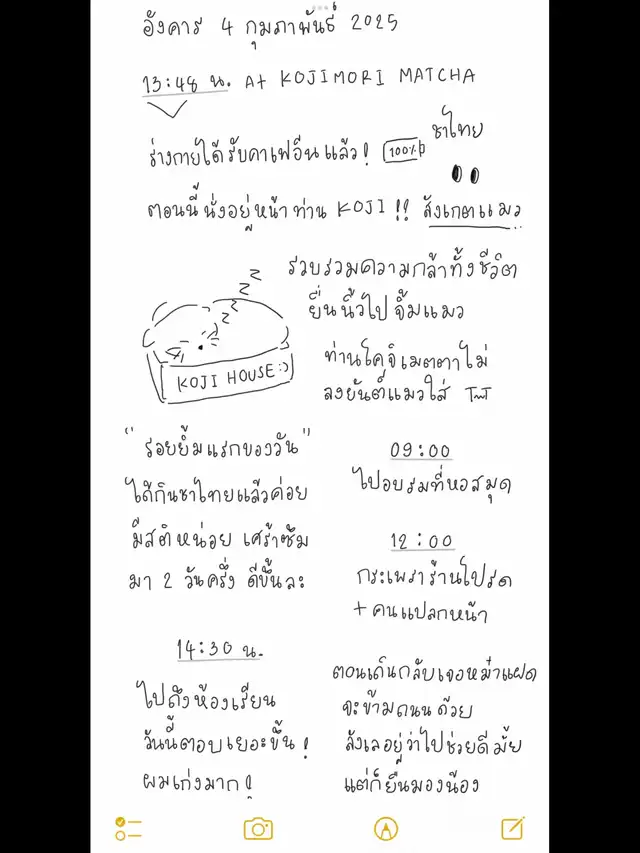 อังคาร 4 กุมภาพันธ์ 2025
13:48 น. At KOJIMORI MATCHA
ร่างกายได้รับคาเฟอีนแล้ว! 100% ชาไทย
ตอนนี้นั่งอยู่หน้าท่าน KOJI!! สังเกตแมว
รวบรวมความกล้าทั้งชีวิต
ยื่นนิ้วไปจิ้มแมว
z z z z
ท่านโคจิเมตตาไม่
ลงยันต์แมวใส่ TmT
KOJI HOUSE:)
"รอยยิ้มแรกของวัน"
ได้กินชาไทยแล้วค่อย
มีสติหน่อย เศร้าซึม
มา 2 วันครึ่ง ดีขึ้นละ
09:00
ไปอบรมที่หอสมุด
12:00
กระเพราร้านโปรด
+ คนแปลกหน้า
14:30 น.
ไปถึงห้องเรียน
วันนี้ตอบเยอะขึ้น!
ผมเก่งมาก!
ตอนเดินกลับเจอหมาแฝด
จะข้ามถนนด้วย
ลังเลอยู่ว่าไปช่วยดีมั้ย
แต่ก็ยืนมองน้อง